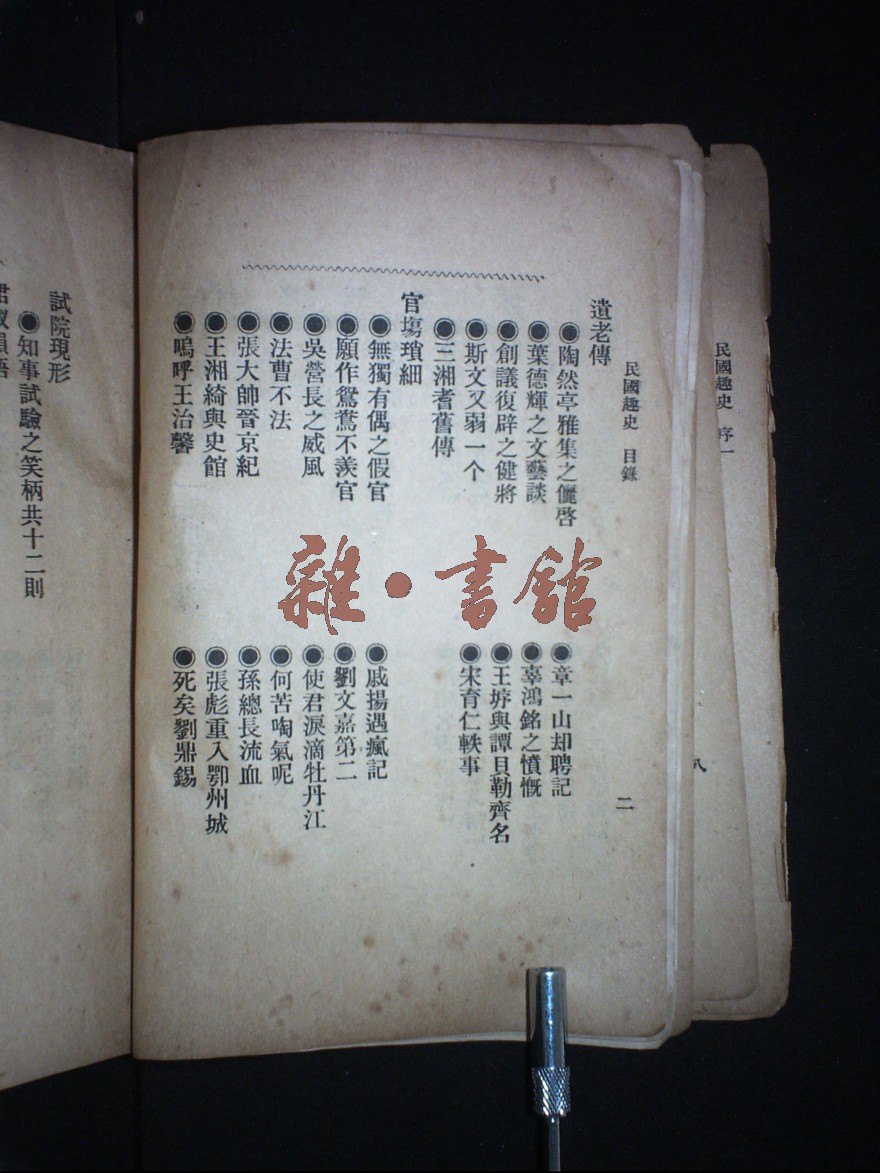 民國趣史 序一
八
民國趣史 目錄
二
遺老傳
◉陶然亭雅集之儷啓
◉章一山却聘記
◉葉德輝之文藝談
◉辜鴻銘之憤慨
◉創議復辟之健將
◉王垿與譚貝勒齊名
◉斯文又弱一个
◉宋育仁軼事
◉三湘耆舊傳
官塲瑣細
◉無獨有偶之假官
◉戚揚遇瘋記
◉願作鴛鴦不羨官
◉劉文嘉第二
◉吳營長之威風
◉使君淚滴牡丹江
◉法曹不法
◉何苦啕氣呢
◉張大帥晉京紀
◉孫總長流血
◉王湘綺與史館
◉張彪重入鄂州城
◉嗚呼王治馨
◉死矣劉鼎錫
試院現形
◉知事試驗之笑柄共十二則
雜·書館